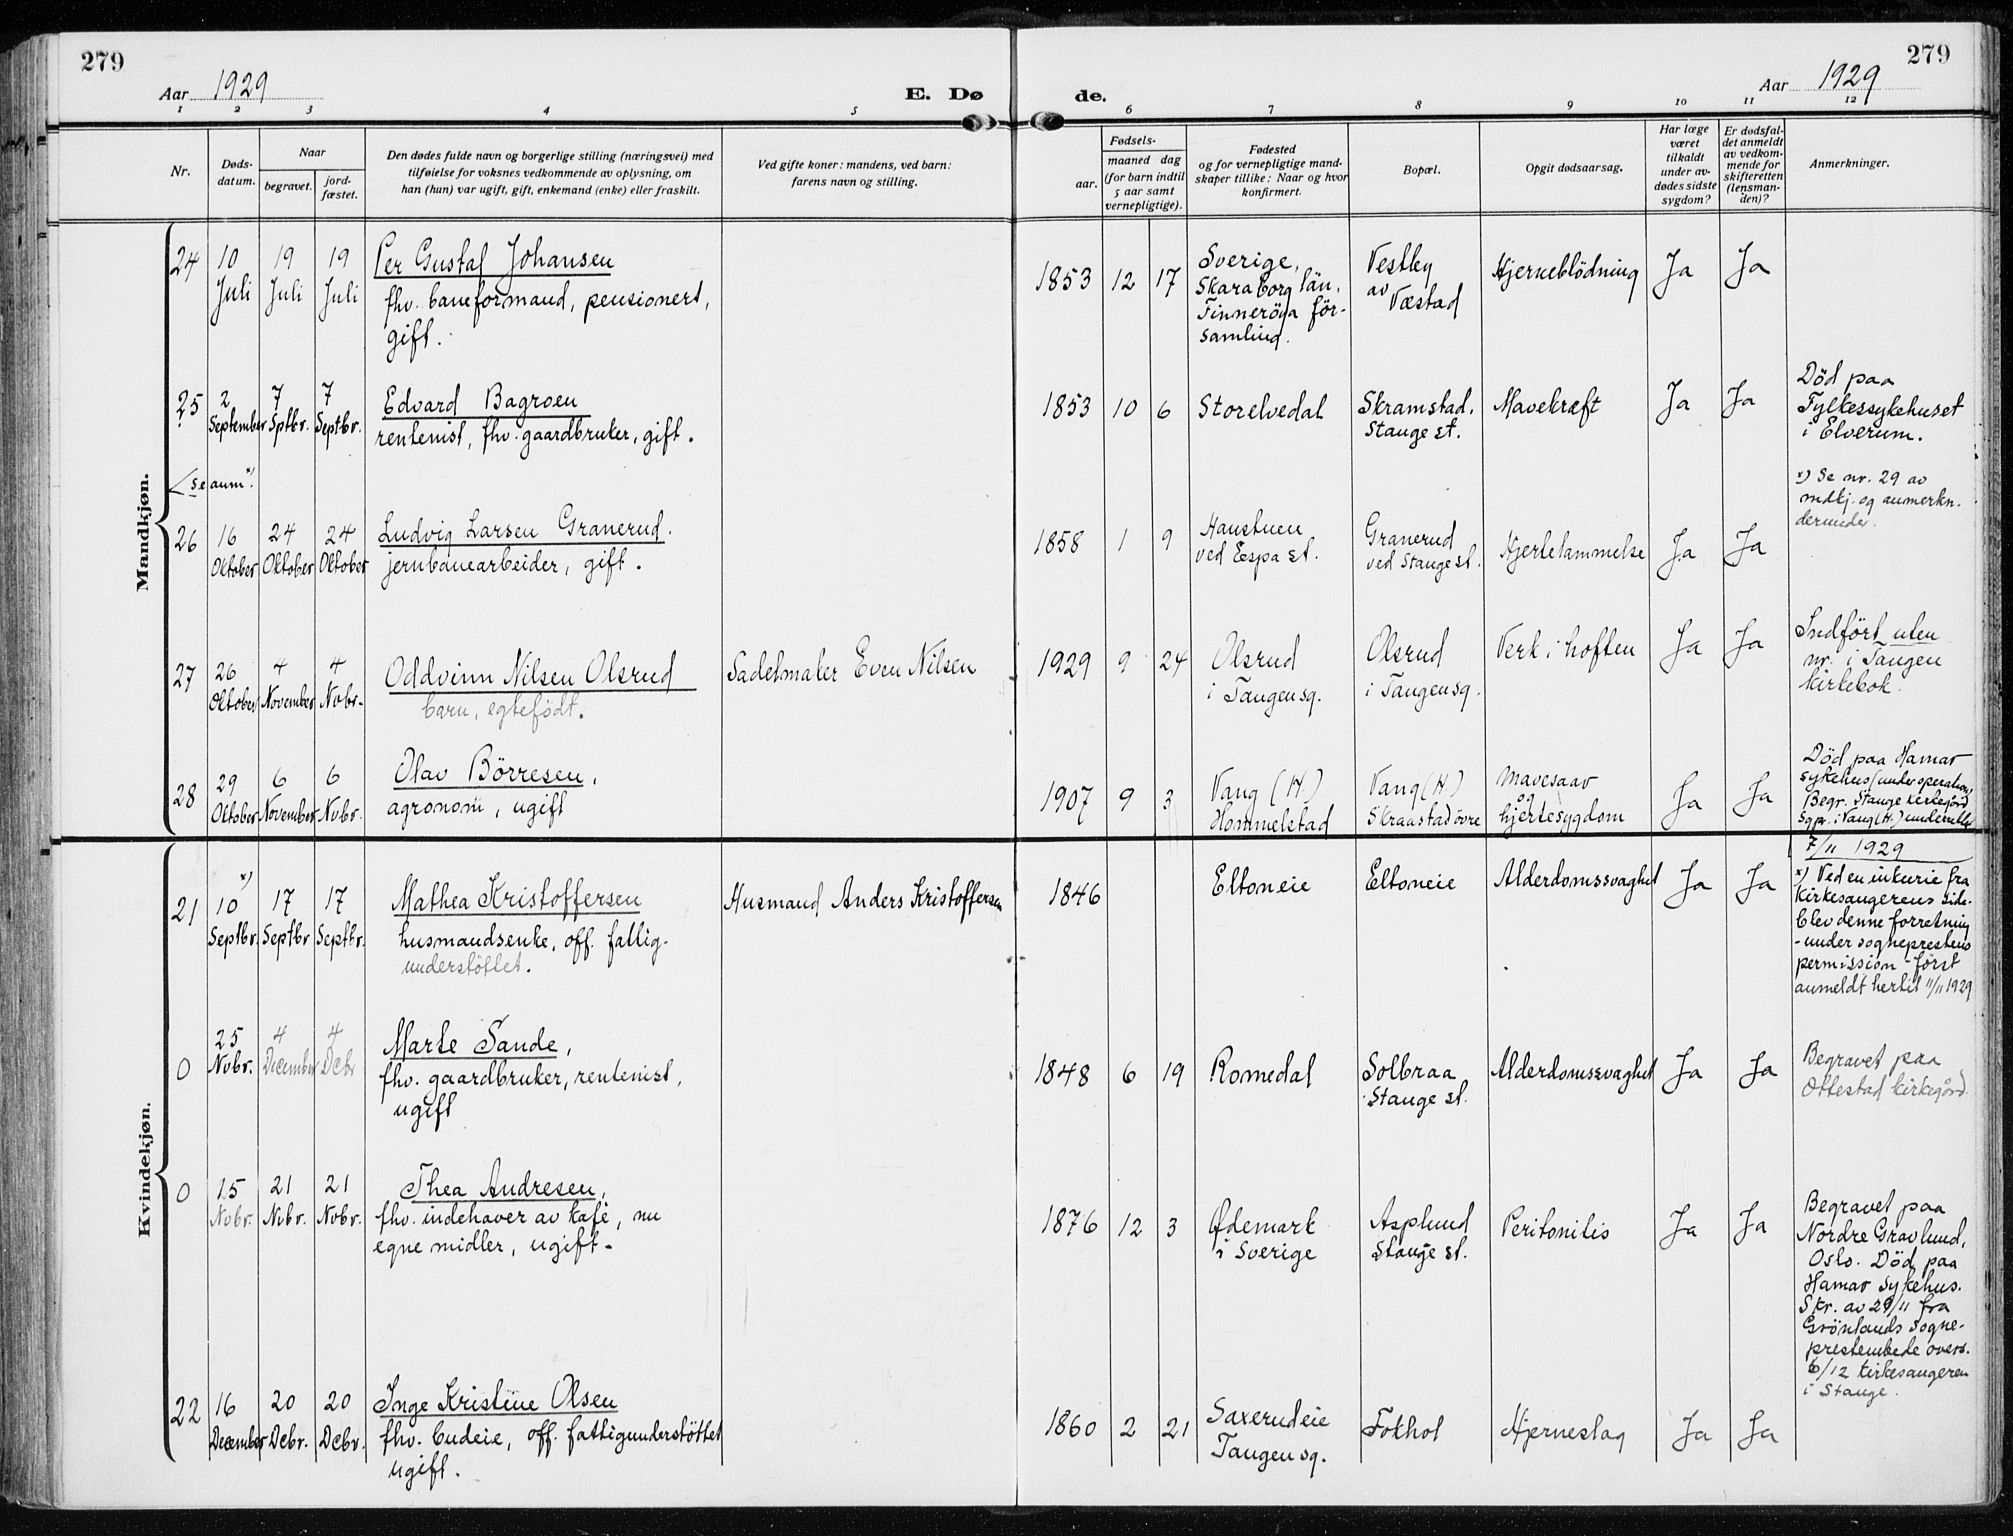 279
279
Aar 1929
E. Dø
de.
Aar 1929
1 2 3 4 5 6 7 8 9 10 11 12
Nr.
Døds-
datum.
Naar
begravet.
jord-
fæstet.
Den dødes fulde navn og borgerlige stilling (næringsvei) med
tilføielse for voksnes vedkommende av oplysning, om
han (hun) var ugift, gift, enkemand (enke) eller fraskilt.
Ved gifte koner: mandens, ved barn:
farens navn og stilling.
Fødsels-
aar.
maaned dag
(for barn indtil
5 aar samt
vernepligtige).
Fødested
og for vernepligtige mand-
skaper tillike: Naar og hvor
konfirmert.
Bopæl.
Opgit dødsaarsag.
Har læge
været
tilkaldt
under av-
dødes sidste
sygdom?
Er dødsfal-
det anmeldt
av vedkom-
mende for
skifteretten
(lensman-
den)?
Anmerkninger.
Mandkjøn.
24
10
Juli
19
Juli
19
Juli
Per Gustaf Johansen
fhv. baneformand, pensionert,
gift.
1853 12 17
Sverige,
Skaraborg län,
Finneröja för-
samling.
Vestby
av
Væstad
Hjerneblödning
Ja
Ja
25
2
September
7
Sptbr.
7
Septbr.
Edvard Bagroen
rentenist, fhv. gaardbruker, gift.
1853 10 6
Storelvedal
Skramstad,
Stange st.
Mavekræft
Ja
Ja
Död paa
Fylkessykehuset
i Elverum.
Se anm x)
x) Se nr. 29 av
mdkj. og anmerkn.
derunder.
26
16
Oktober
24
Oktober
24
Oktober
Ludvig Larsen Granerud.
jernbanearbeider, gift.
1858 1 9
Haustuen
ved Espa st.
Granerud
ved Stange st.
Hjertelammelse
Ja
Ja
27
26
Oktober
4
November
4
Nobr.
Oddvinn Nilsen Olsrud
barn, egtefödt.
Sadelmaker Even Nilsen
1929 9 24
Olsrud
i Tangen sg.
Olsrud
i Tangen sg.
Verk i hoften
Ja
Ja
Indfört uten
nr. i Tangen
kirkebok.
28
29
Oktober
6
November
6
Nvbr.
Olav Börresen,
agronom, ugift
1907 9 3
Vang (H.)
Hommelstad
Vang (H)
Skraastad övre
Mavesaar
og
hjertesygdom
Ja
Ja
Död paa Hamar
sykehus (under operation)
Begr. Stange kirkegård
Sgpr. i Vang (H.) underrettet
7/11 1929
Kvindekjøn.
21
x)
10
Septbr.
17
Septbr
17
Septbr.
Mathea Kristoffersen
husmandsenke, off. fattig-
understöttet.
Husmand Anders Kristoffersen
1846
Eltoneie
Eltoneie
Alderdomssvaghet
Ja
Ja
x) Ved en inkurie fra
kirkesangerens side
blev denne forretning
- under sogneprestens
permission - först
anmeldt hertil 11/11 1929
0
25
Novbr.
4
December
4
Dcbr
Marte Sande,
fhv. gaardbruker, rentenist,
ugift
1848 6 19
Romedal
Solbraa
Stange st.
Alderdomssvaghet
Ja
Ja
Begravet paa
Ottestad kirkegård.
0
15
Nvbr.
21
Nvbr.
21
Nobr.
Thea Andresen,
fhv. indehaver av kafé, nu
egne midler, ugift.
1876 12 3
Ødemark
i Sverige
Asplund
Stange st.
Peritonitis
Ja
Ja
Begravet paa
Nordre Gravlund,
Oslo. Död paa
Hamar Sykehus.
Skr. av 29/11 fra
Grönlands sogne-
prestembede overs.
6/12 kirkesangeren
i Stange.
22
16
December
20
Dcbr.
20
Dcbr.
Inge Kristine Olsen
fhv. budeie, off. fattigunderstöttet
ugift.
1860 2 21
Saxerudeie
Tangen sg.
Fokhol
Hjerneslag
Ja
Ja